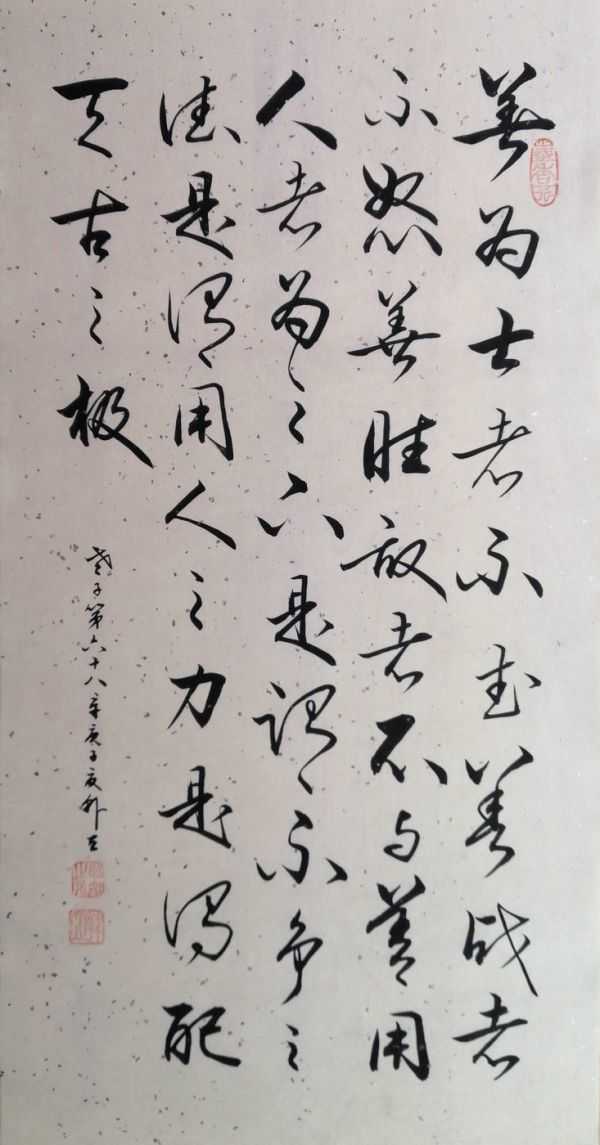 善为士者不武善战者
不怒善胜敌者不与善用
人者为之下是谓不争之
德是谓用人之力是谓配
天古之极
老子第六十八章庚子夏